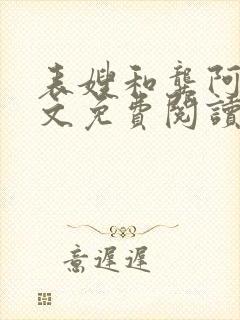 表嫂和龔阿
文免費閱讀
意遲遲